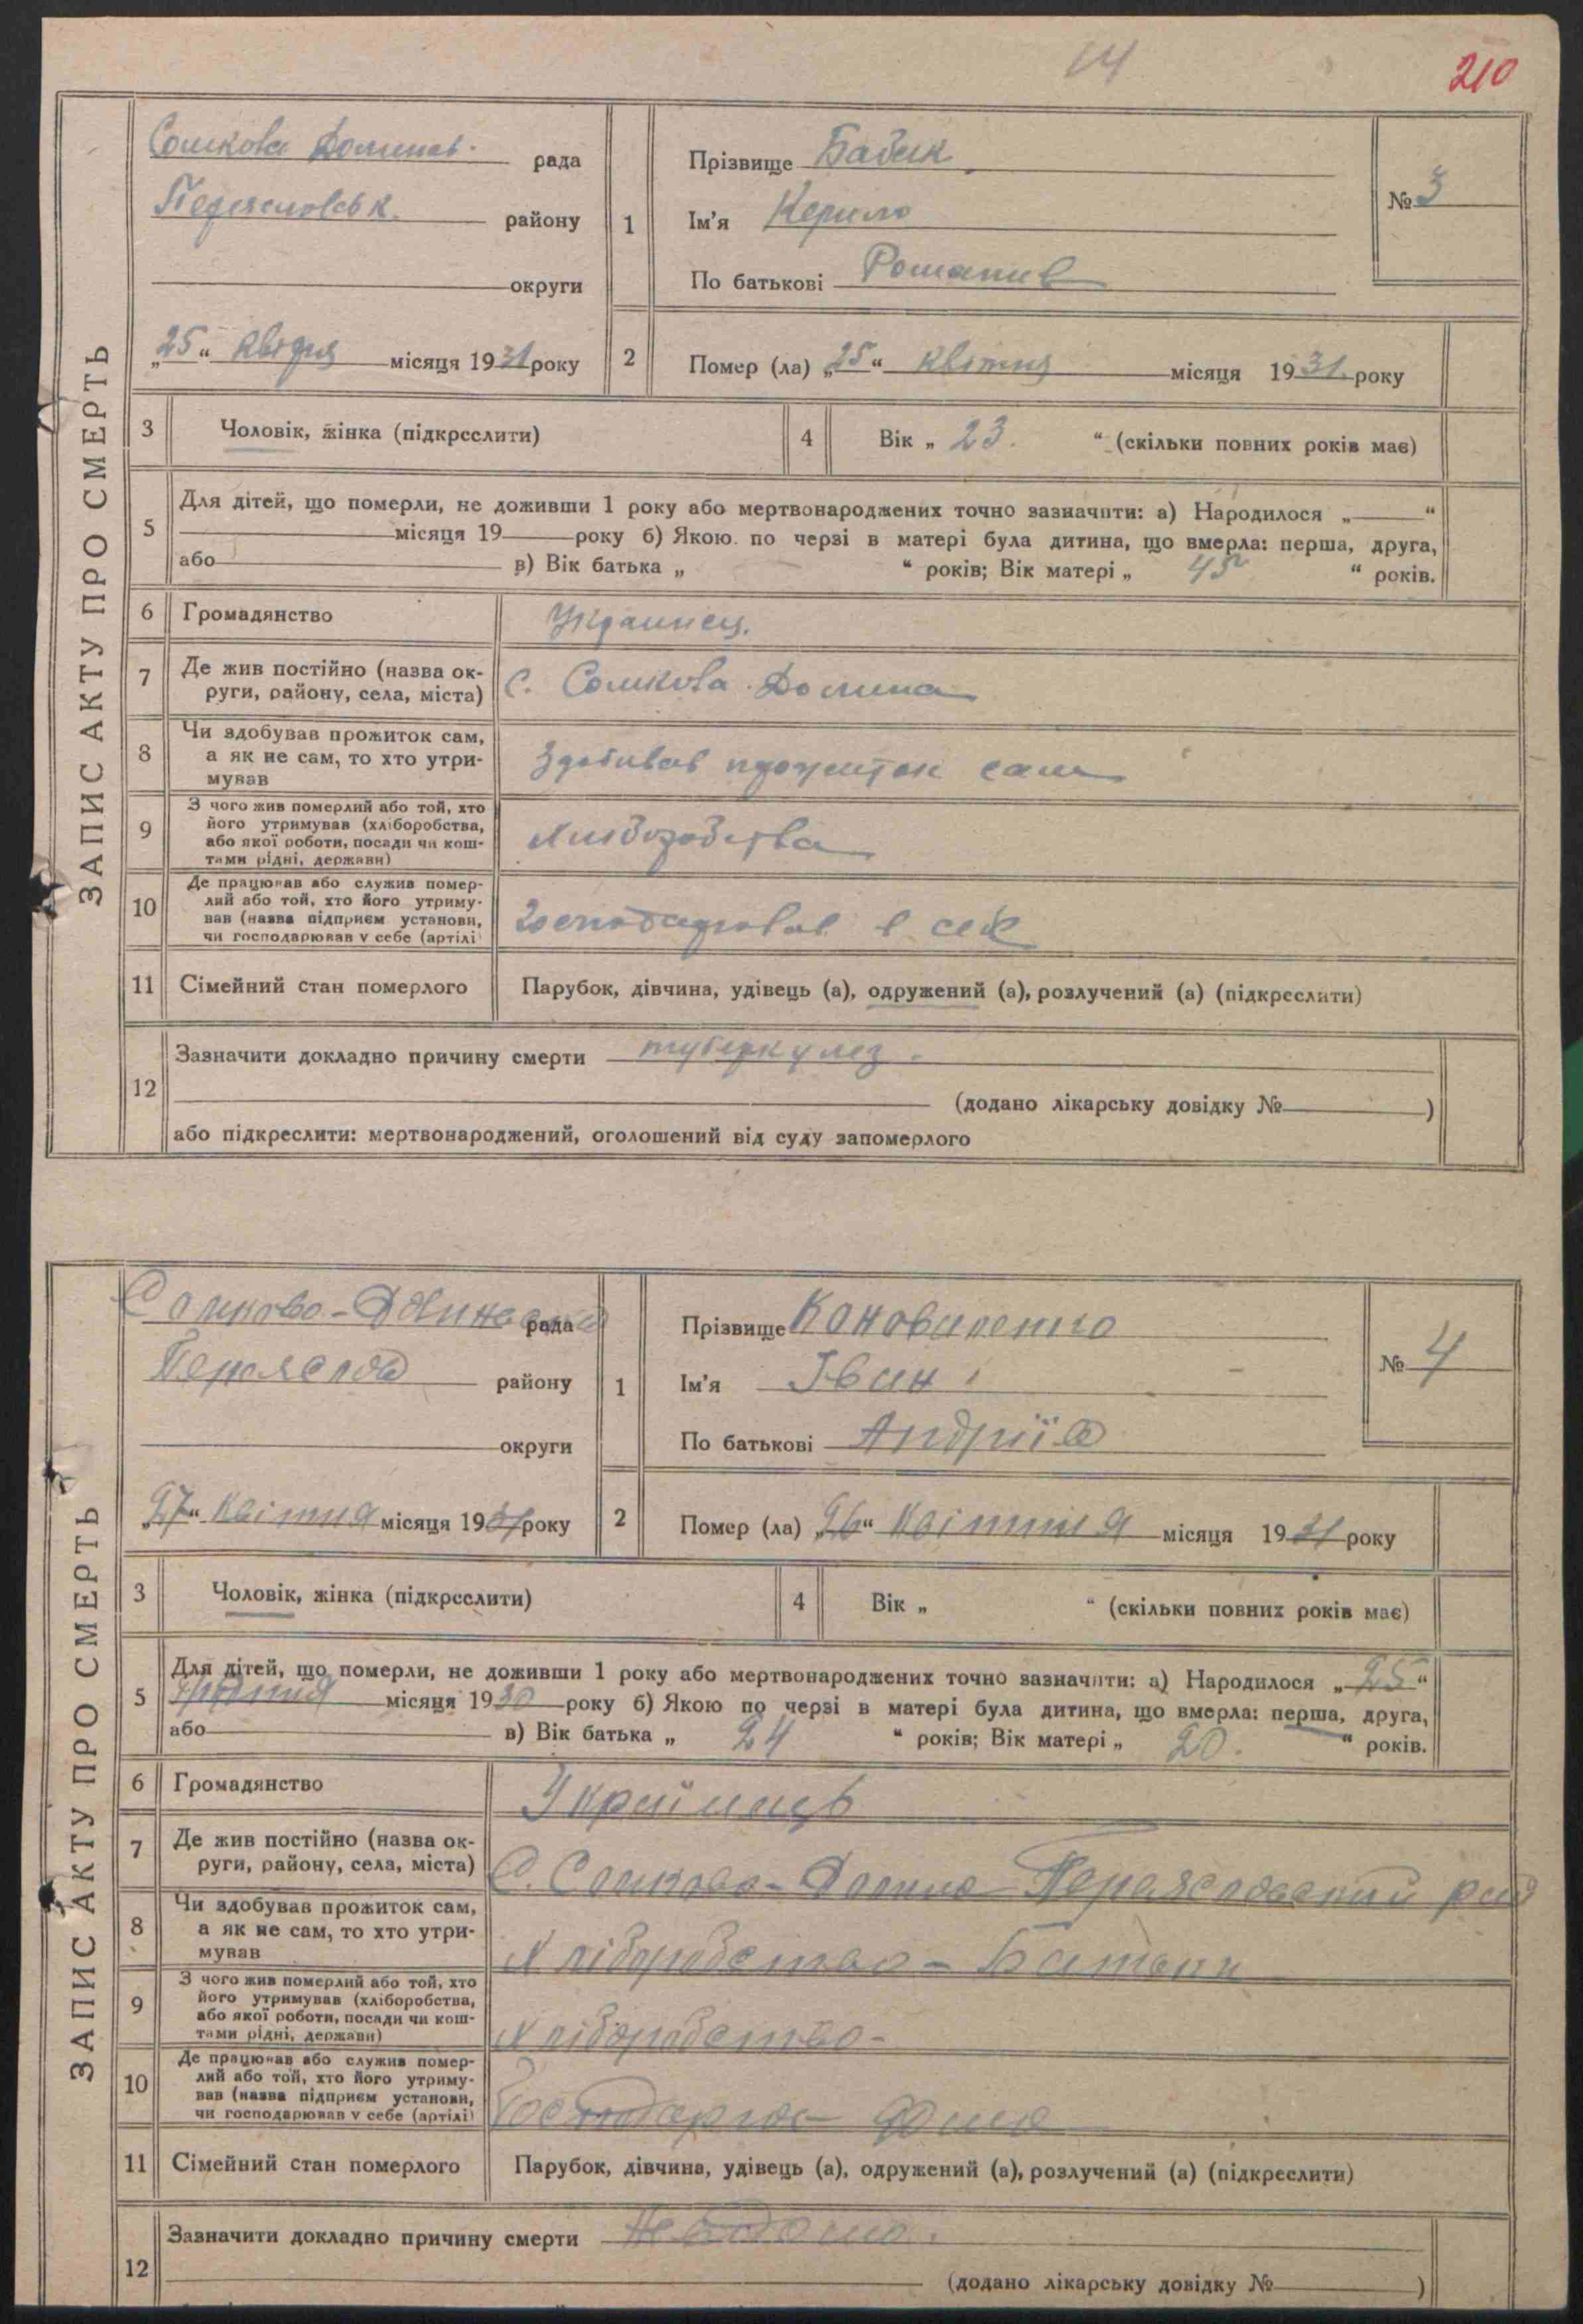 14
210
ЗАПИС АКТУ ПРО СМЕРТЬ
Сомкова Долинсь. рада
Переяславськ. району
округи
„25“ квітня місяця 1931 року
1
Прізвище Бабак
Ім'я Керило
По батькові Романив
№ 3
2 Помер (ла) „25“ квітня місяця 1931 року
3 Чоловік, жінка (підкреслити)
4 Вік „ 23. “ (скільки повних років має)
5 Для дітей, що померли, не доживши 1 року або мертвонароджених точно зазначити: а) Народилося „ “
місяця 19 року б) Якою по черзі в матері була дитина, що вмерла: перша, друга,
або в) Вік батька „ “ років; Вік матері „ 45 “ років.
6 Громадянство Украинец.
7 Де жив постійно (назва ок-
руги, району, села, міста) с. Сомкова Долина
8 Чи здобував прожиток сам,
а як не сам, то хто утри-
мував
Здобивав прожиток сам
9 З чого жив померлий або той, хто
його утримував (хліборобства,
або якої роботи, посади чи кош-
тами рідні, держави)
Хлиборобства
10 Де працював або служив помер-
лий або той, хто його утриму-
вав (назва підприєм установи,
чи господарював у себе (артілі)
Господарував в себе
11 Сімейний стан померлого Парубок, дівчина, удівець (а), одружений (а), розлучений (а) (підкреслити)
12 Зазначити докладно причину смерти туберкулез.
(додано лікарську довідку № )
або підкреслити: мертвонароджений, оголошений від суду запомерлого
ЗАПИС АКТУ ПРО СМЕРТЬ
Сомково-Долинська рада
Переяслов району
округи
„27“ Квітня місяця 1931 року
1
Прізвище Коноваленко
Ім'я Іван
По батькові Андріїв
№ 4
2 Помер (ла) „26“ Квітня місяця 1931 року
3 Чоловік, жінка (підкреслити)
4 Вік „ “ (скільки повних років має)
5 Для дітей, що померли, не доживши 1 року або мертвонароджених точно зазначити: а) Народилося „25“
місяця 1930 року б) Якою по черзі в матері була дитина, що вмерла: перша, друга,
або в) Вік батька „ 24 “ років; Вік матері „ 20. “ років.
6 Громадянство Українець
7 Де жив постійно (назва ок-
руги, району, села, міста) С. Сомково-Долина Переясловский рай
8 Чи здобував прожиток сам,
а як не сам, то хто утри-
мував
Хліборобство - Батьки
9 З чого жив померлий або той, хто
його утримував (хліборобства,
або якої роботи, посади чи кош-
тами рідні, держави)
Хліборобство-
10 Де працював або служив помер-
лий або той, хто його утриму-
вав (назва підприєм установи,
чи господарював у себе (артілі)
Господарює дома
11 Сімейний стан померлого Парубок, дівчина, удівець (а), одружений (а), розлучений (а) (підкреслити)
12 Зазначити докладно причину смерти Невідомо.
(додано лікарську довідку № )